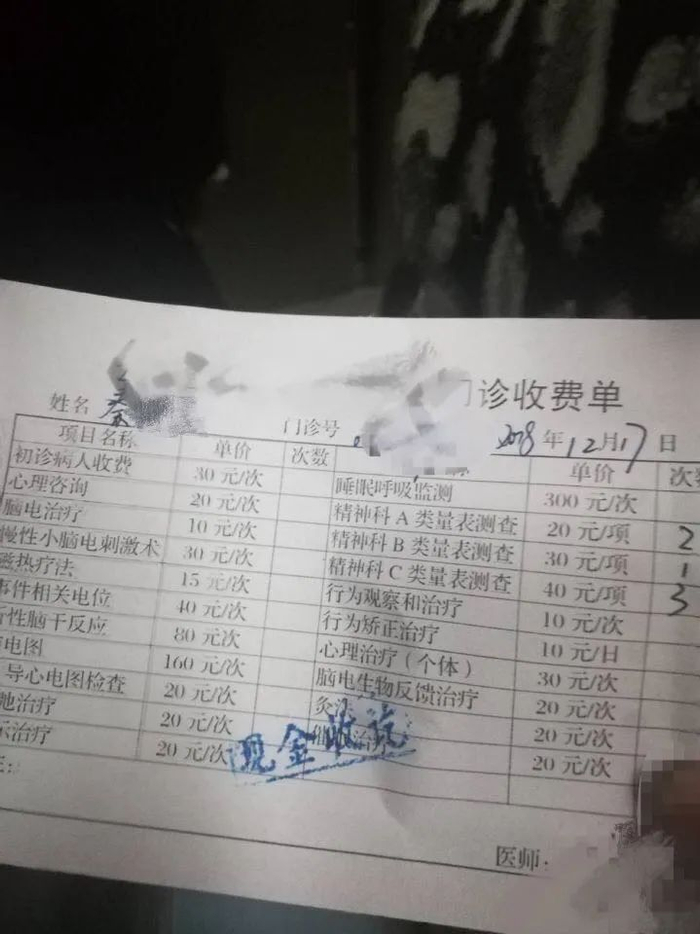 门诊收费单
姓名 秦 门诊号 2018年12月17日
项目名称 单价 次数 单价 次数
初诊病人收费 30元/次 睡眠呼吸监测 300元/次
心理咨询 20元/次 精神科A类量表测查 20元/项 2
脑电治疗 10元/次 精神科B类量表测查 30元/项 1
慢性小脑电刺激术 30元/次 精神科C类量表测查 40元/项 3
磁热疗法 15元/次 行为观察和治疗 10元/次
事件相关电位 40元/次 行为矫正治疗 10元/日
性脑干反应 80元/次 心理治疗（个体） 30元/次
电图 160元/次 脑电生物反馈治疗 20元/次
导心电图检查 20元/次 灸 20元/次
治疗 20元/次 治疗 20元/次
示治疗 20元/次
现金收讫
医师：